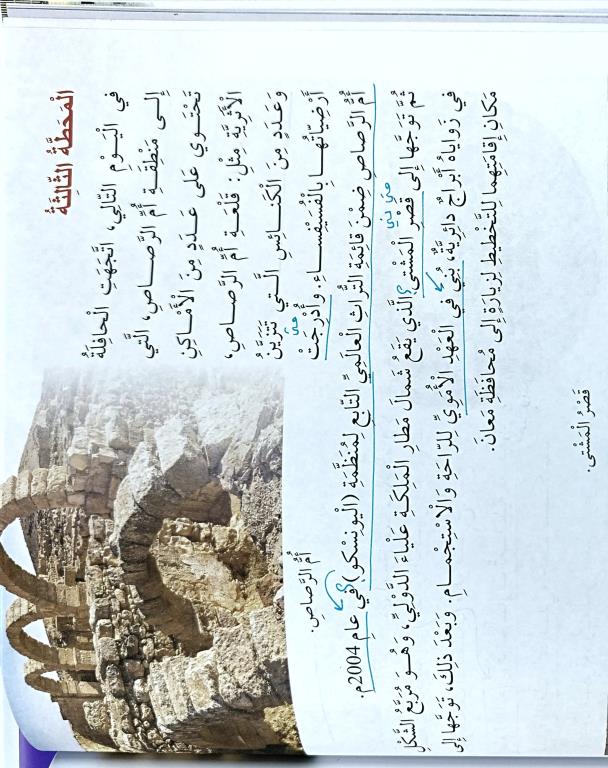 الْمَحَطَّةُ الثَّالِثَةُ
في الْيَــوْمِ التّالِي، اتَّجَهَتِ الْحافِلَةُ
إِلــى مَنْطِقَــةِ أُمِّ الرَّصــاصِ، الَّتي
تَحْتَــوي عَلى عَــدَدٍ مِنَ الْأَماكِنِ
الْأَثَرِيَّةِ مِثْلِ: قَلْعَةِ أُمِّ الرَّصاصِ،
وَعَــدَدٍ مِنَ الْكَنائِسِ الَّتــي تَتَزَيَّنُ
أَرْضِيّاتُهــا بِالْفُسَيْفِســاءِ. وَأُدْرِجَتْ
متى
أُمُّ الرَّصاصِ ضِمْنَ قائِمَةِ التُّراثِ الْعالَمِيِّ التّابِعِ لِمُنَظَّمَةِ (الْيونِسْكو) في عامِ 2004م.
أُمُّ الرَّصاصِ.
ثُمَّ تَوَجَّها إِلى قَصْرِ الْمَشْتى الَّذي يَقَعُ شَمالَ مَطارِ الْمَلِكَةِ عَلْياءَ الدَّوْلِيِّ، وَهُــوَ مُرَبَّعُ الشَّكْلِ
متى بني
في زَواياهُ أَبْراجٌ دائِرِيَّةٌ، بُنِيَ في الْعَهْدِ الْأُمَوِيِّ لِلرّاحَةِ وَالْاسْتِجْمــامِ. وَبَعْدَ ذلِكَ، تَوَجَّها إِلى
مَكانِ إِقامَتِهِما لِلتَّخْطيطِ لِزِيارَةٍ إِلى مُحافَظَةِ مَعانَ.
قَصْرُ الْمَشْتى.